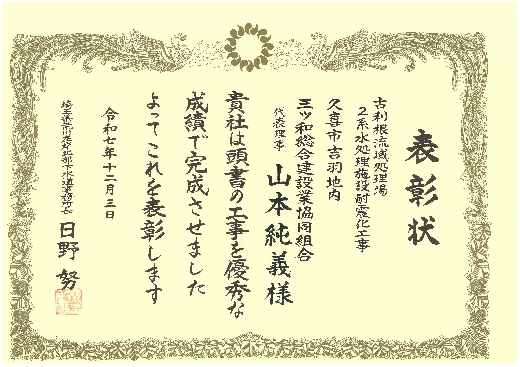 表彰状
古利根流域処理場
2系水処理施設耐震化工事
久喜市吉羽地内
三ツ和総合建設業協同組合
代表理事 山本純義様
貴社は頭書の工事を優秀な
成績で完成させました
よってこれを表彰します
令和七年十二月三日
日野 努